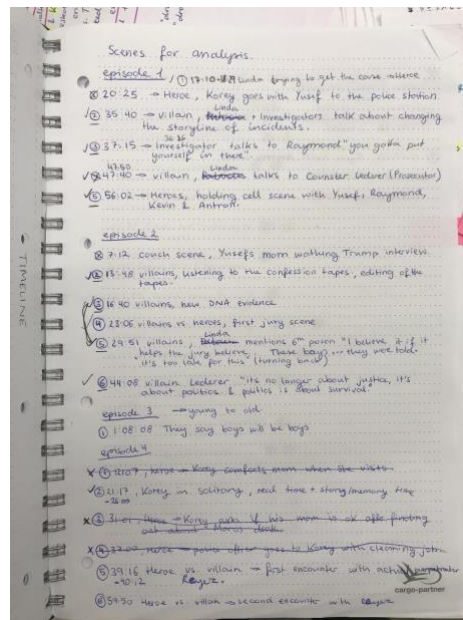 Scenes for analysis.
episode 1
① 17:10 Linda trying to get the case
20:25 → Heroe, Korey goes with Yusef to the police station
② 35:40 → Villain, Linda + Investigators talk about changing
the storyline of incidents.
36:36
③ 37:15 → Investigator talks to Raymond "you gotta put
yourself in there"
47:50
47:40 → villain, Linda talks to Counsler Lederer (Prosecutor)
⑤ 56:02 → Heroes, holding cell scene with Yusef, Raymond,
Kevin & Antron.
episode 2
7:12 couch scene, Yusefs mom watching Trump interview
② 13:48 villains, listening to the confession tapes, editing of the
tapes.
③ 16:40 villains, new DNA evidence
④ 23:06 villains vs heroes, first jury scene
⑤ 29:51 villains, Linda mentions 6th person "I believe it if it
helps the jury believe, These boys... they were told.
it's too late for this" (turning back)
⑥ 44:08 villain Lederer "its no longer about justice, it's
about politics & politics is about survival"
episode 3 → young to old
① 1:08:08 They say boys will be boys
episode 4
① heroe → Korey comforts mom when she visits
② 21:17, Korey in solitary, real time + story/memory
③ Heroe → Korey asks if his mom is ok after finding
out about
④ heroe → police officer goes to Korey with cleaning job
⑤ 39:16 Heroe vs. villain → first encounter with
40:12 Reyez.
⑥ 59:50 Heroe vs. villain → second encounter with Reyez
TIMELINE
cargo-partner